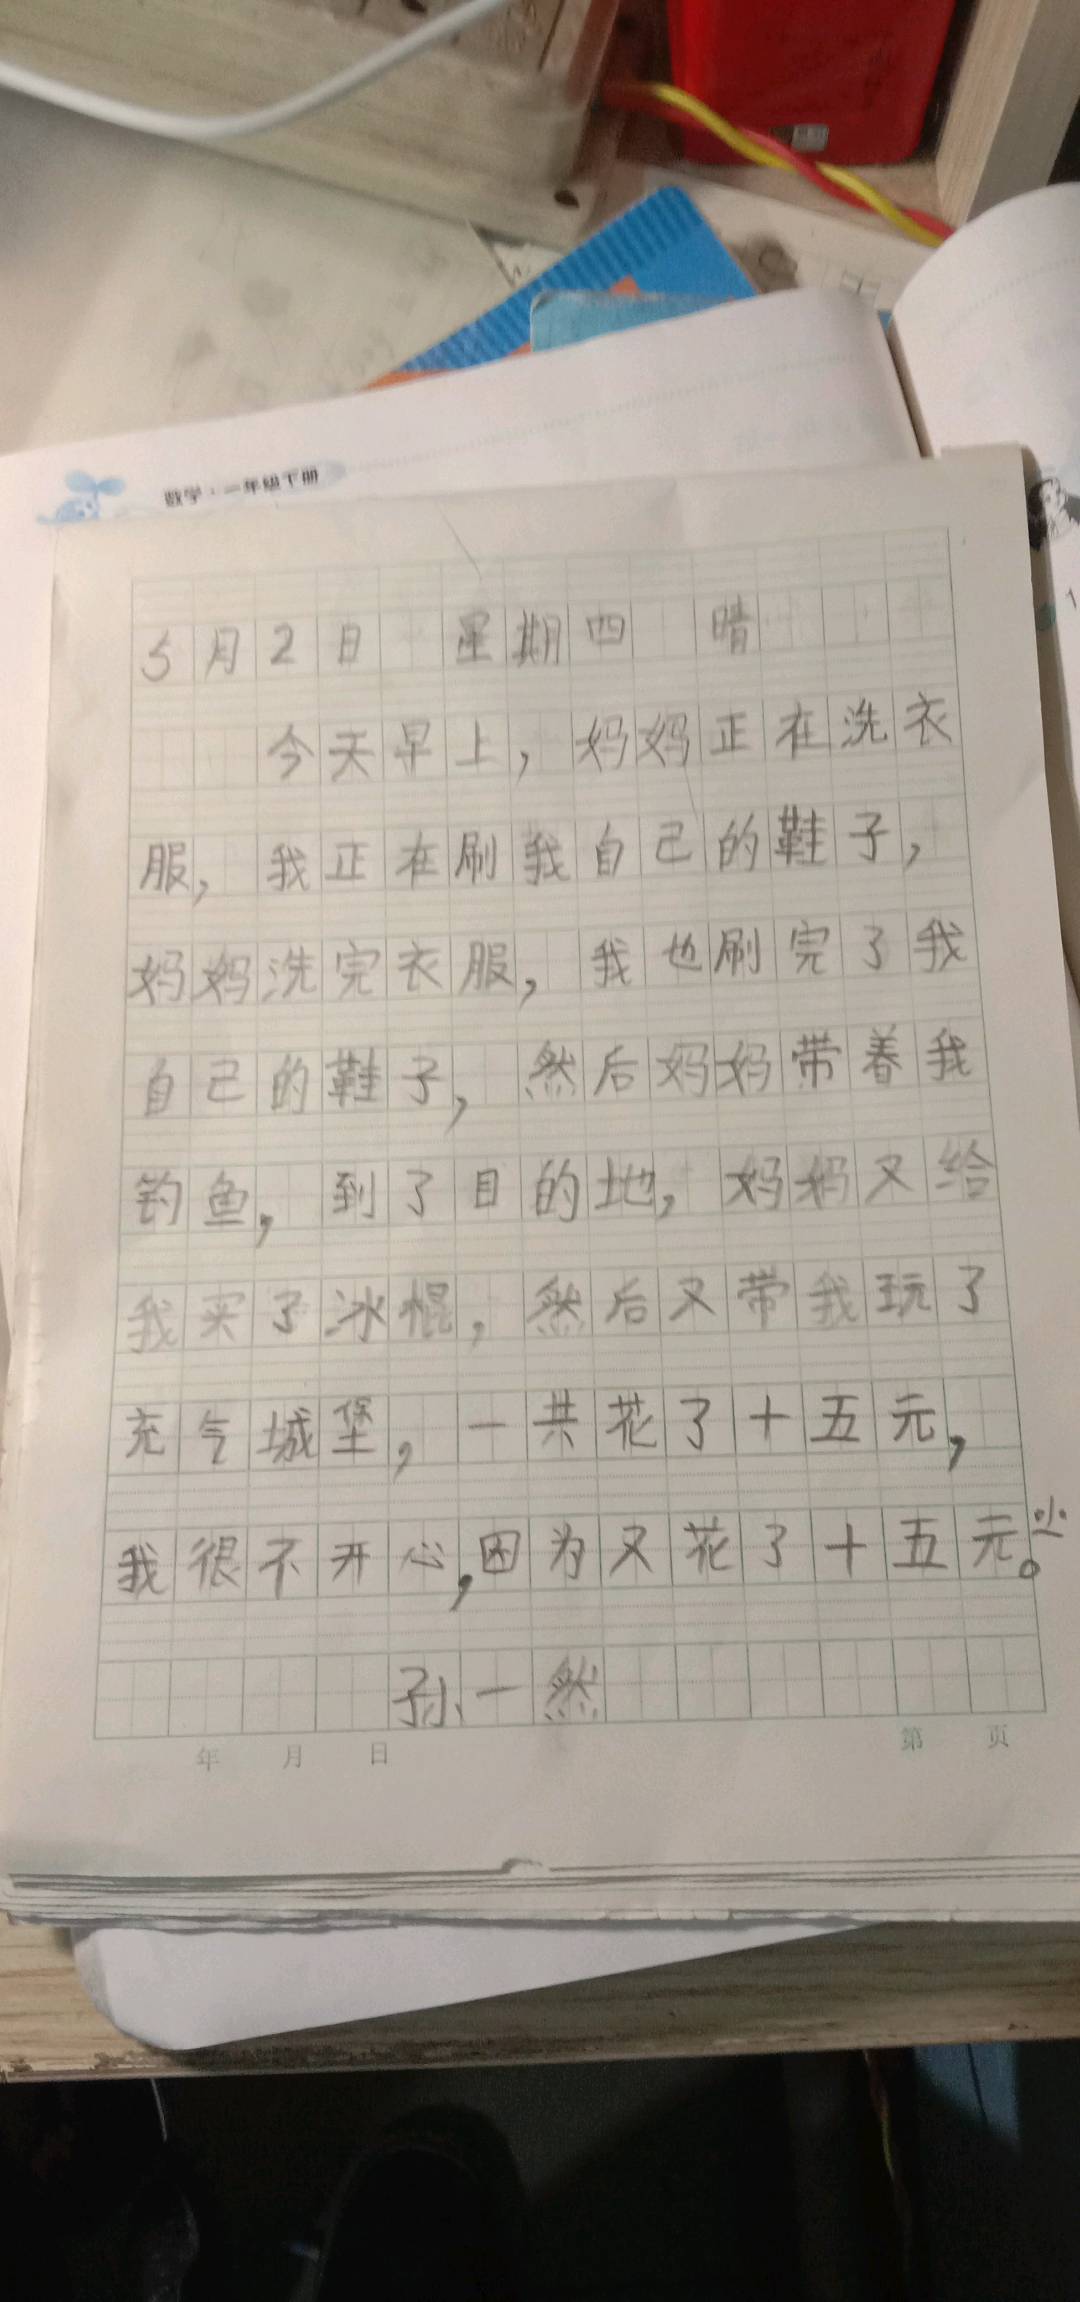 数学·一年级下册
5月2日 星期四 晴
今天早上，妈妈正在洗衣
服，我正在刷我自己的鞋子，
妈妈洗完衣服，我也刷完了我
自己的鞋子，然后妈妈带着我
钓鱼，到了目的地，妈妈又给
我买了冰棍，然后又带我玩了
充气城堡，一共花了十五元，
我很不开心，因为又花了十五元。
孙一然
年 月 日 第 页